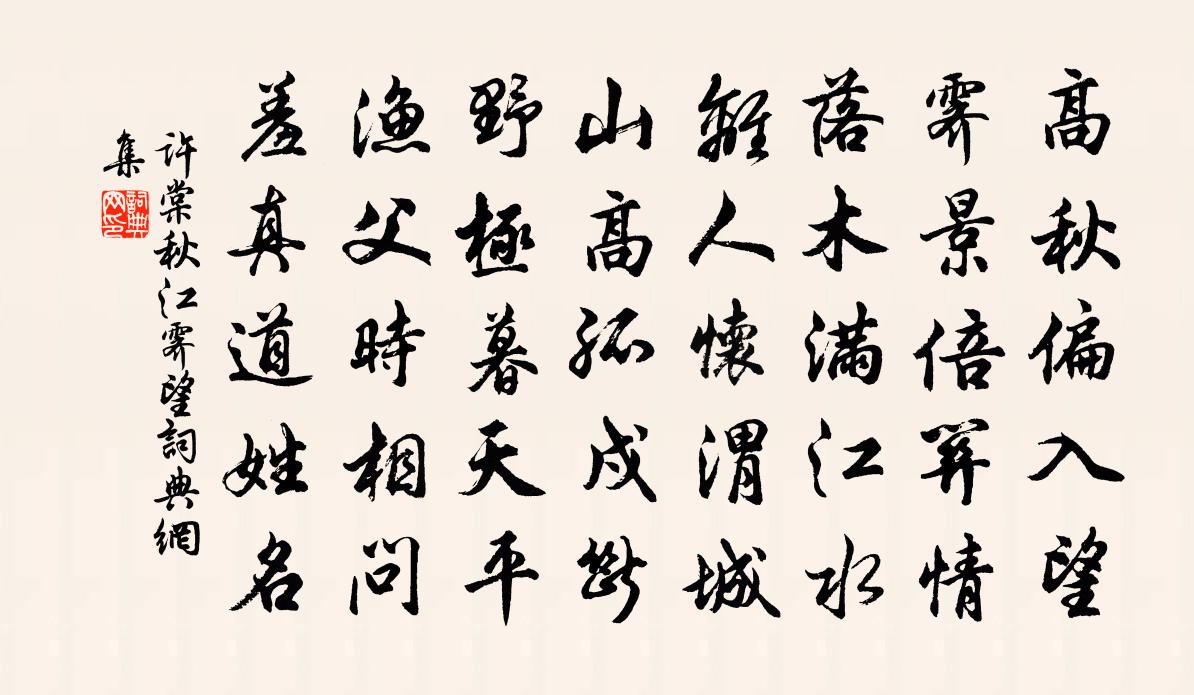 高秋偏入望
霽景倍關情
落木滿江水
離人懷渭城
山高孤戍斷
野極暮天平
漁父時相問
羞真道姓名
許棠秋江霽望詞典網
集
詞典
网印